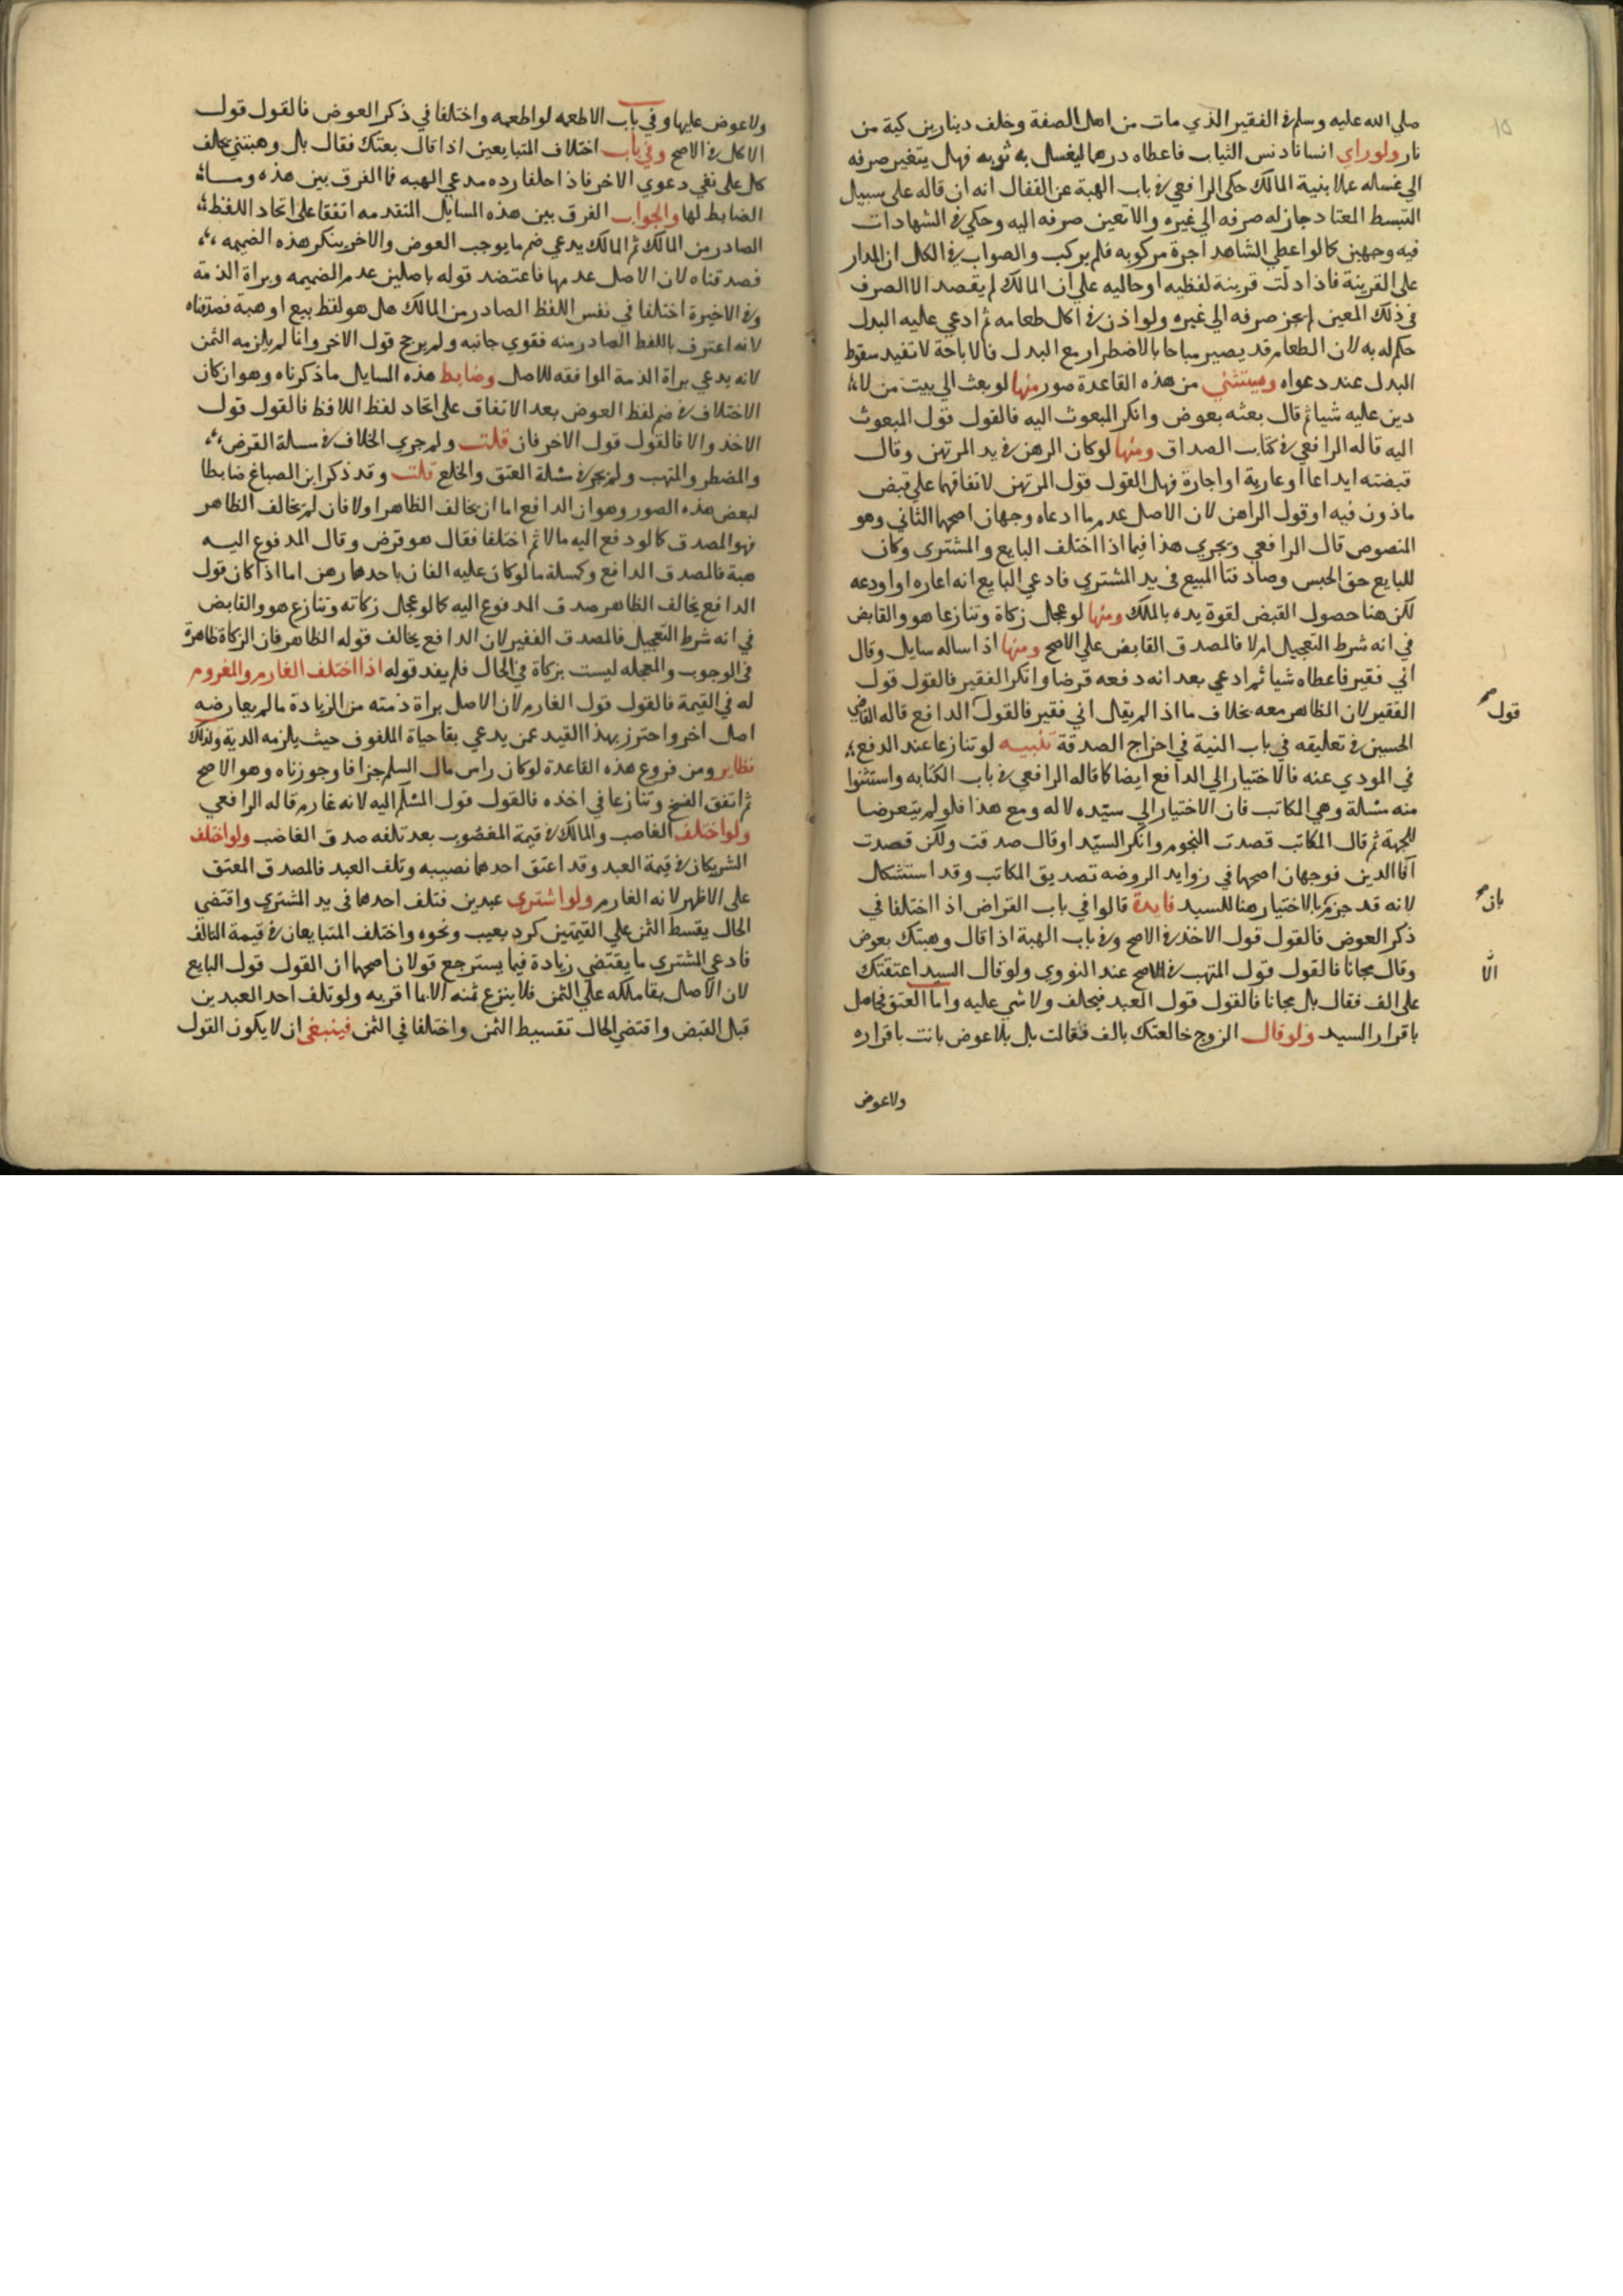 صلي الله عليه وسلم في الفقير الذي مات من اهل الصفة وخلف دينارين كية من
نار ولوراي انسانا دنس الثياب فاعطاه درهما ليغسل به ثوبه فهل يتغير صرفه
الي غسله عملا بنية المالك حكى الرافعي في باب الهبة عن القفال انه ان قاله على سبيل
التبسط المعتاد جاز له صرفه الي غيره والا تعين صرفه اليه وحكي في الشهادات
فيه وجهين كالواعطي الشاهد اجرة مركوبه فلم يركب والصواب في الكل ان المدار
على القرينة فاذا دلت قرينة لفظيه اوحاليه علي ان المالك لم يقصد الا الصرف
في ذلك المعين لم يجز صرفه الي غيره ولو اذن في اكل طعامه ثم ادعي عليه البدل
حكم له به لان الطعام قد يصير مباحا بالاضطرار مع البدل فالاباحة لا تفيد سقوط
البدل عند دعواه ويستثني من هذه القاعدة صور منها لو بعث الي بيت من لا
دين عليه شيا ثم قال بعثه بعوض وانكر المبعوث اليه فالقول قول المبعوث
اليه قاله الرافعي في كتاب الصداق ومنها لو كان الرهن في يد المرتهن وقال
قبضته ايداعا اوعارية او اجارة فهل القول قول المرتهن لاتفاقهما علي قبض
ماذون فيه او قول الراهن لان الاصل عدم ما ادعاه وجهان اصحهما الثاني وهو
المنصوص قال الرافعي ويجري هذا فيما اذا اختلف البايع والمشتري وكان
للبايع حق الحبس وصادفنا المبيع في يد المشتري فادعي البايع انه اعاره او اودعه
لكن هنا حصول القبض لقوة يده بالملك ومنها لو عجل زكاة وتنازعا هو والقابض
في انه شرط التعجيل ام لا فالمصدق القابض علي الاصح ومنها اذا ساله سايل وقال
اني فقير فاعطاه شيا ثم ادعي بعد انه دفعه قرضا وانكر الفقير فالقول قول
الفقير لان الظاهر معه بخلاف ما اذا لم يقل اني فقير فالقول الدافع قاله القاضي
قول صح
الحسين في تعليقه في باب النية في اخراج الصدقة تنبيه لو تنازعا عند الدفع
في المودي عنه فالاختيار الي الدافع ايضا كما قاله الرافعي في باب الكتابه واستثنوا
منه مسئلة وهي المكاتب فان الاختيار الي سيده لا له ومع هذا فلو لم يتعرضا
للجهة ثم قال المكاتب قصدت النجوم وانكر السيد او قال صدقت ولكن قصدت
انا الدين فوجهان اصحهما في زوايد الروضه تصديق المكاتب وقد استشكل
لانه قد جزم بالاختيار هنا للسيد فايدة قالوا في باب القراض اذا اختلفا في
بان صح
ذكر العوض فالقول قول الاخذ في الاصح وفي باب الهبة اذا قال وهبتك بعوض
وقال مجانا فالقول قول المتهب في الاصح عند النووي ولوقال السيد اعتقتك
الا
على الف فقال بل مجانا فالقول قول العبد فيحلف ولا شي عليه واما العتق فحاصل
باقرار السيد ولو قال الزوج خالعتك بالف فقالت بل بلا عوض بانت باقراره
ولا عوض
ولا عوض عليها وفي باب الاطعمه لو اطعمه واختلفا في ذكر العوض فالقول قول
الاكل في الاصح وفي باب اختلاف المتبايعين اذا قال بعتك فقال بل وهبتني يحلف
كل على نفي دعوي الاخر فاذا حلفا رده مدعي الهبه فما الفرق بين هذه وما
الضابط لها والجواب الفرق بين هذه المسايل المتقدمه اتفقا على اتحاد اللفظ
الصادر من المالك ثم المالك يدعي ضم ما يوجب العوض والاخر ينكر هذه الضميمه
فصدقناه لان الاصل عدمها فاعتضد قوله باصلين عدم الضميمه وبراة الذمة
وفي الاخيرة اختلفا في نفس اللفظ الصادر من المالك هل هو لفظ بيع او هبة فصدقناه
لانه اعترف باللفظ الصادر منه فقوي جانبه ولم يرجح قول الاخر وانما لم يلزمه الثمن
لانه يدعي براة الذمة الموافقه للاصل وضابط هذه المسايل ما ذكرناه وهو ان كان
الاختلاف في ضم لفظ العوض بعد الاتفاق على اتحاد لفظ اللافظ فالقول قول
الاخذ والا فالقول قول الاخر فان قلت ولم جري الخلاف في مسلة القرض
والمضطر والمتهب ولم يجر في مسئلة العتق والخلع قلت وقد ذكر ابن الصباغ ضابطا
لبعض هذه الصور وهو ان الدافع اما ان يخالف الظاهر اولا فان لم يخالف الظاهر
فهو المصدق كالو دفع اليه مالا ثم اختلفا فقال هو قرض وقال المدفوع اليه
هبة فالمصدق الدافع وكمسلة ما لو كان عليه الفان باحدهما رهن اما اذا كان قول
الدافع يخالف الظاهر صدق المدفوع اليه كالو عجل زكاته وتنازع هو والقابض
في انه شرط التعجيل فالمصدق الفقير لان الدافع يخالف قوله الظاهر فان الزكاة ظاهرة
في الوجوب والمعجله ليست بزكاة في الحال فلم يفد قوله اذا اختلف الغارم والمغروم
له في القيمة فالقول قول الغارم لان الاصل براة ذمته من الزيادة ما لم يعارضه
اصل اخر واحترز بهذا القيد عمن يدعي بقا حياة الملفوف حيث يلزمه الدية ولذلك
نظاير ومن فروع هذه القاعدة لو كان راس مال السلم جزافا وجوزناه وهو الاصح
ثم اتفق الفسخ وتنازعا في اخذه فالقول قول المسلم اليه لانه غارم قاله الرافعي
ولو اختلف الغاصب والمالك في قيمة المغصوب بعد تلفه صدق الغاصب ولو اختلف
الشريكان في قيمة العبد وقد اعتق احدهما نصيبه وتلف العبد فالمصدق المعتق
على الاظهر لانه الغارم ولو اشتري عبدين فتلف احدهما في يد المشتري واقتضي
الحال يقسط الثمن علي القيمتين كرد بعيب ونحوه واختلف المتبايعان في قيمة التالف
فادعي المشتري ما يقتضي زيادة فيما يسترجع قولان اصحهما ان القول قول البايع
لان الاصل بقا ملكه علي الثمن فلا ينزع منه الا بما اقر به ولو تلف احد العبدين
قبل القبض واقتضي الحال تقسيط الثمن واختلفا في الثمن فينبغي ان لا يكون القول